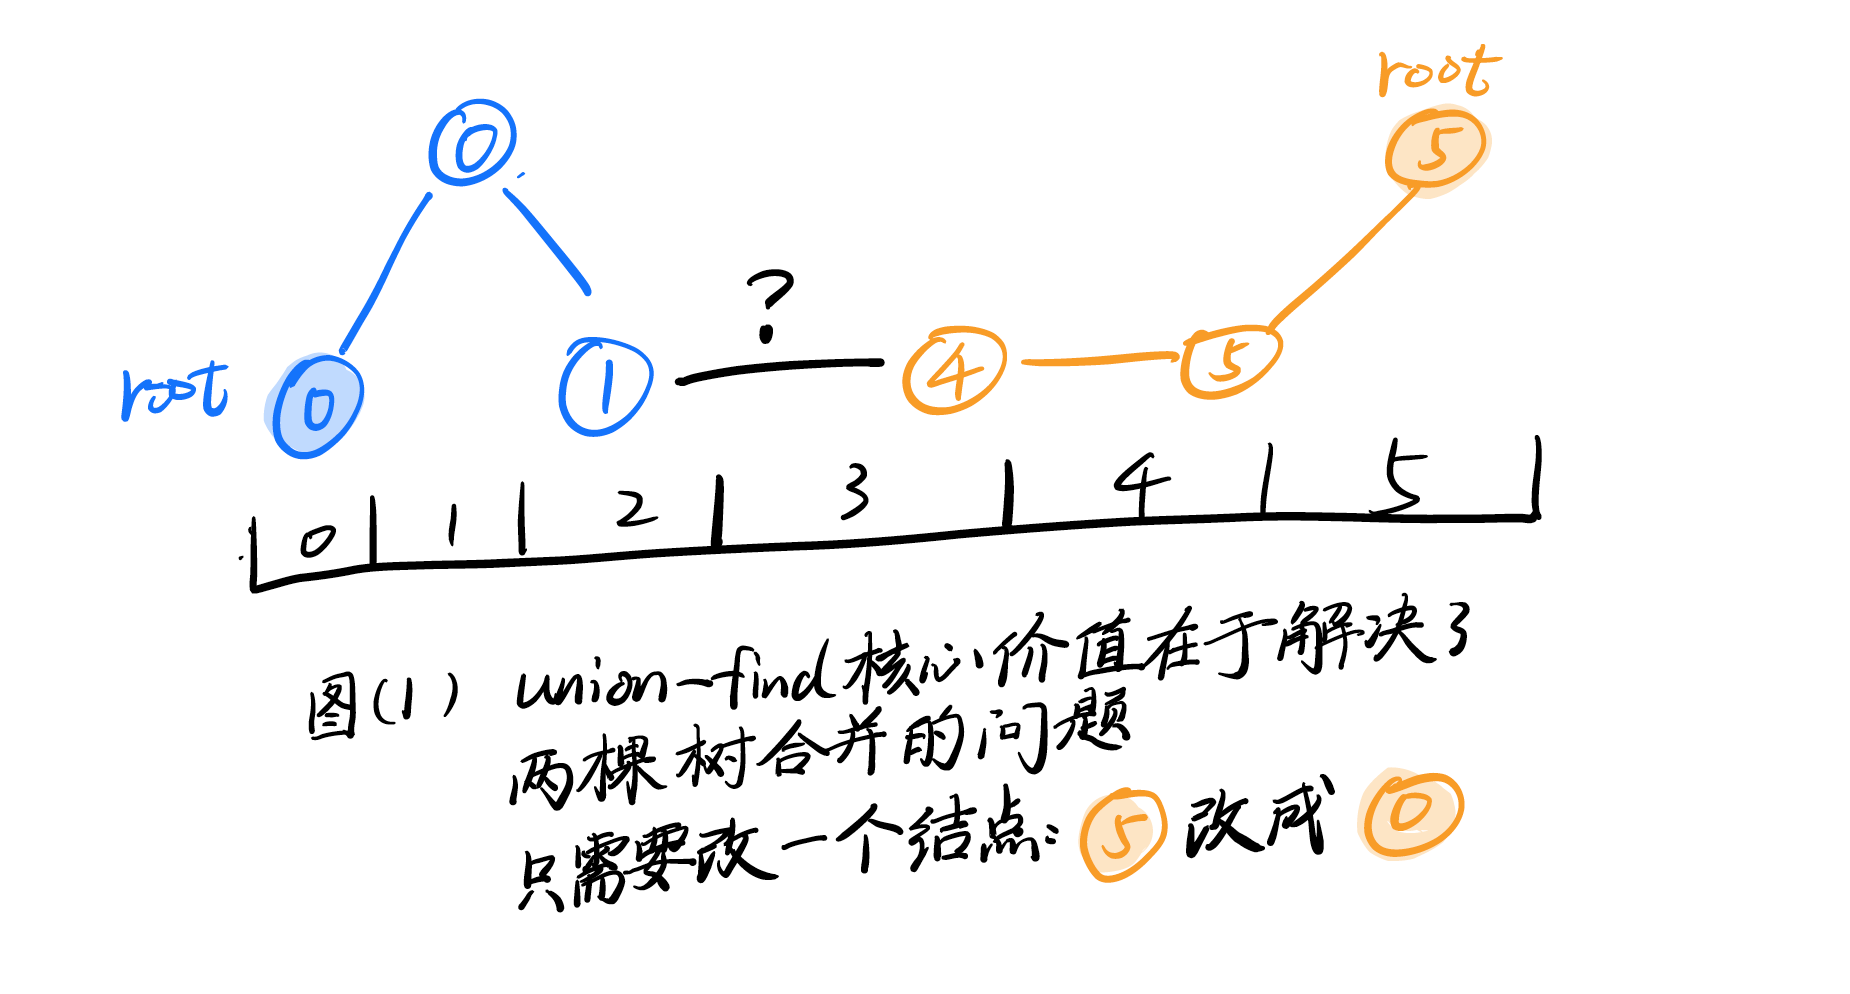 root
5
0
?
root
0
1
4
5
0 1 2 3 4 5
图(1) union-find核心价值在于解决了
两棵树合并的问题
只需要改一个结点: 5 改成 0